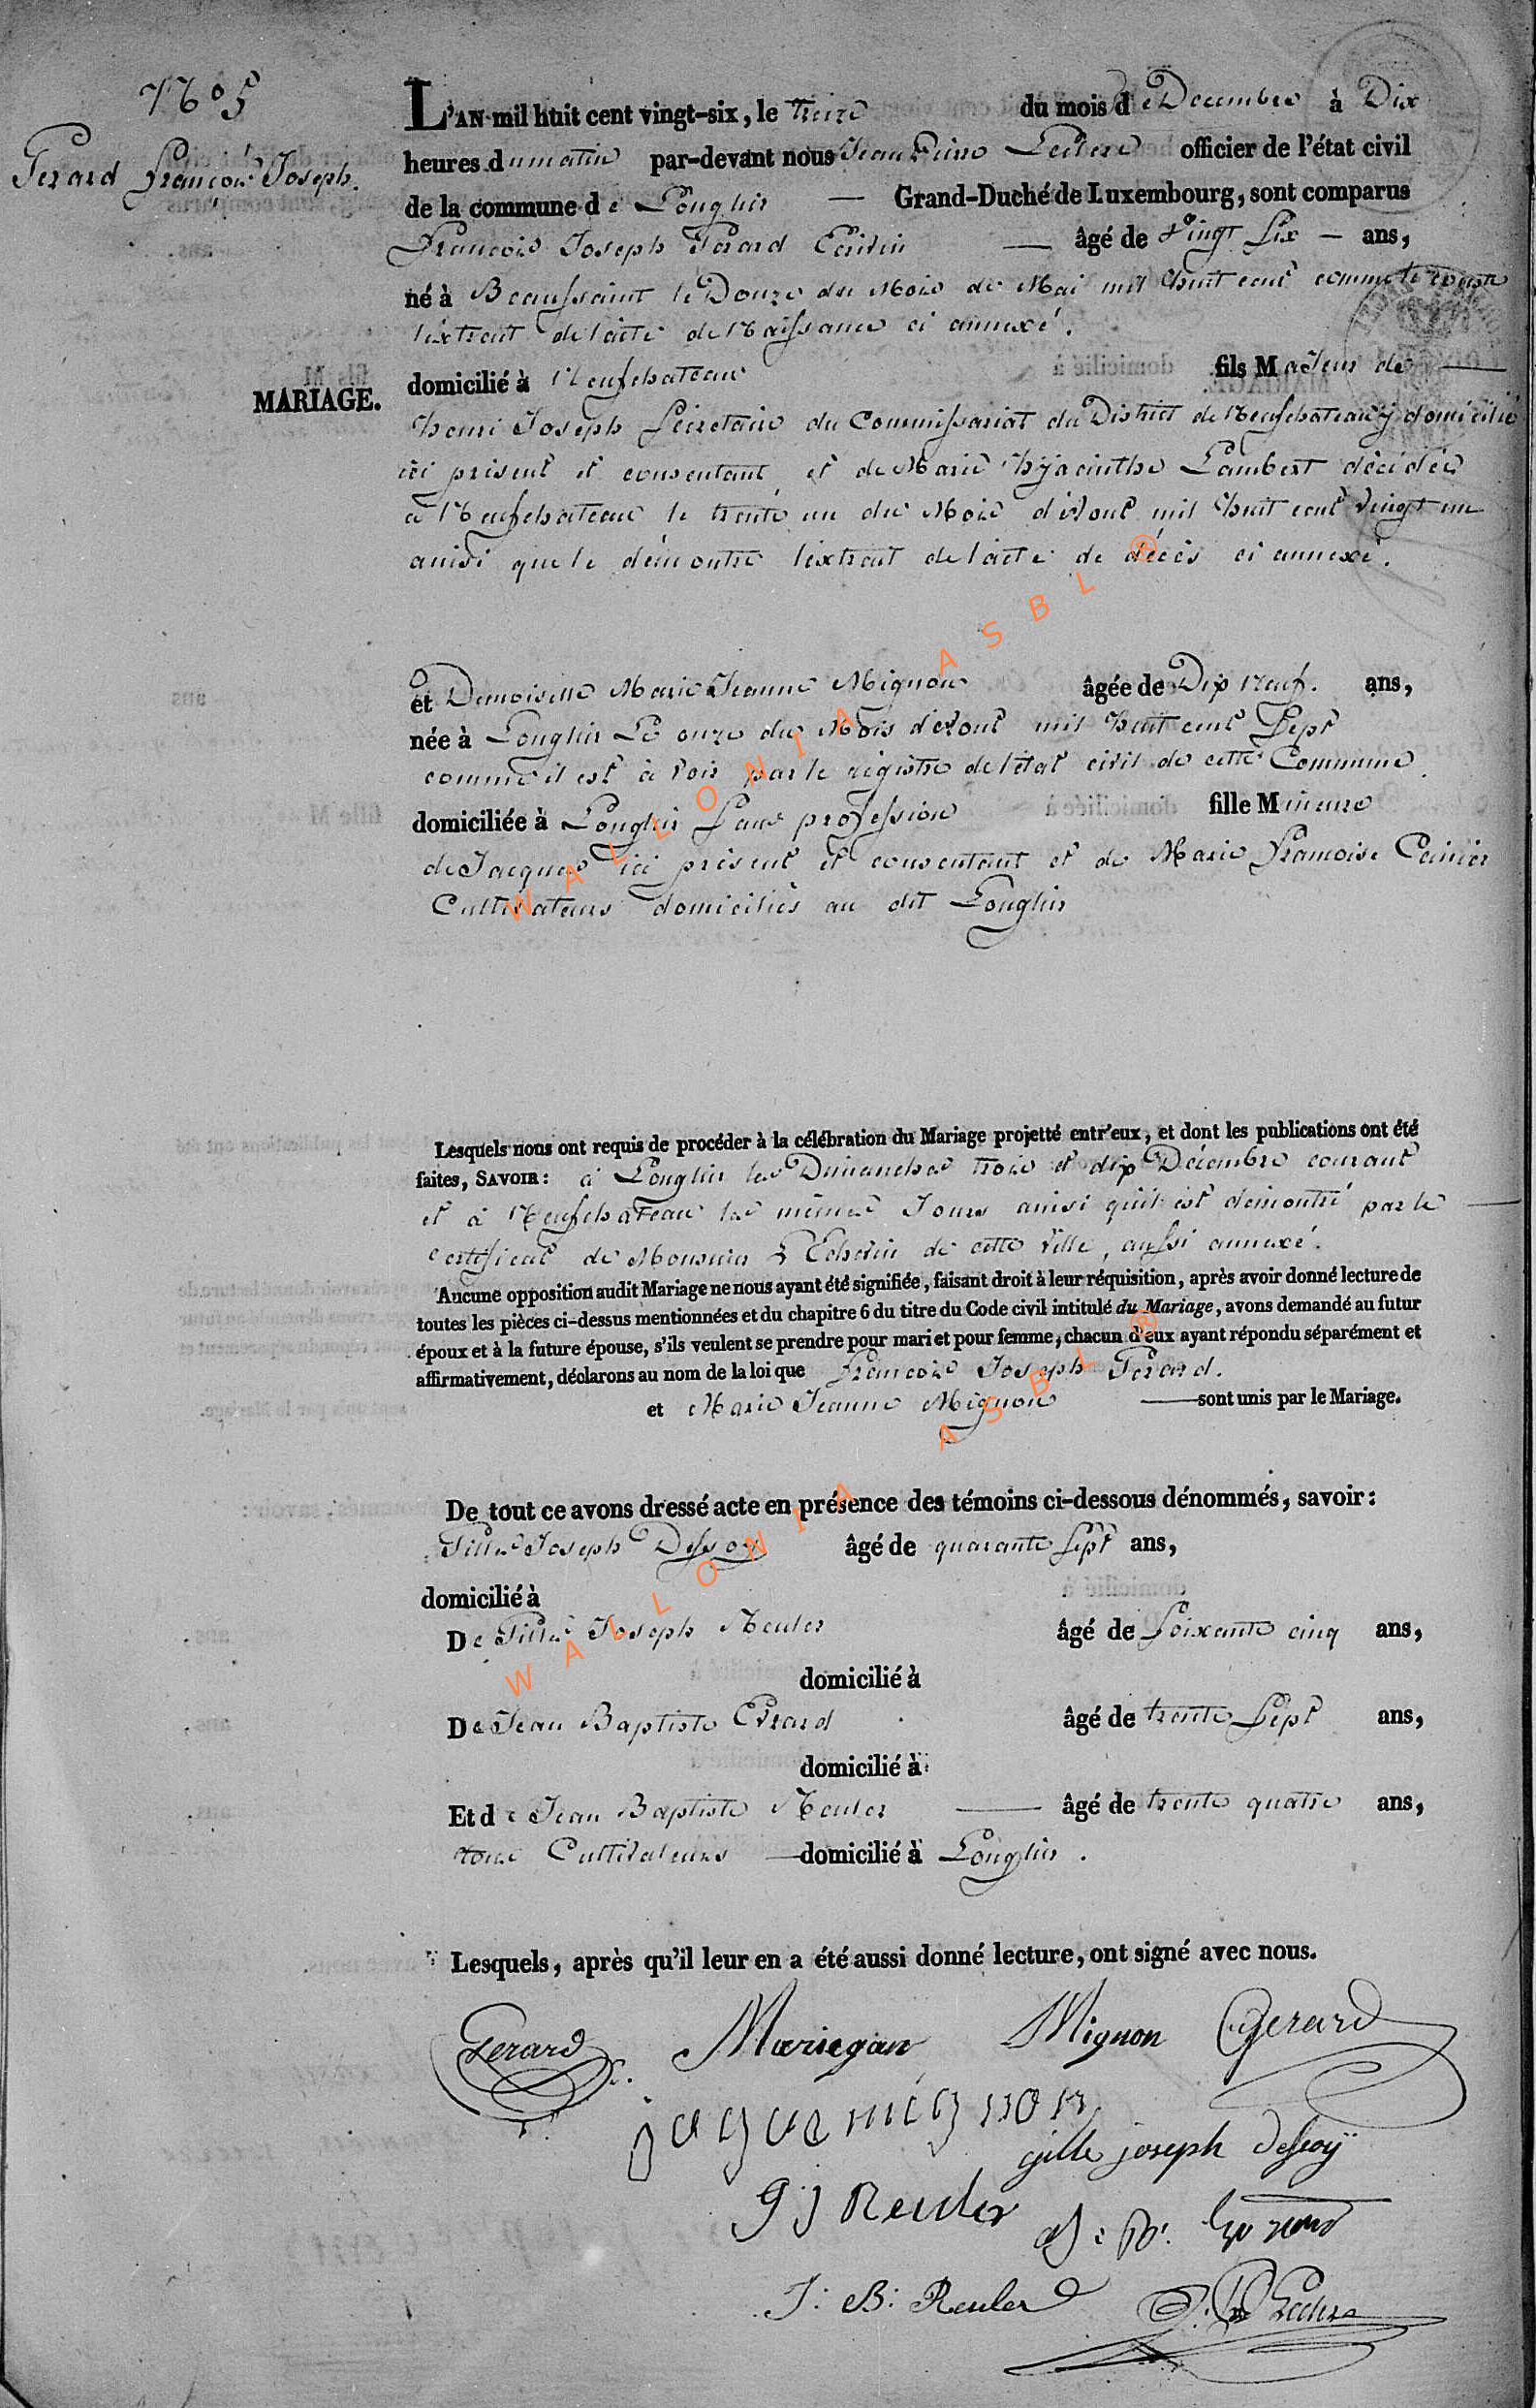 N.º 5
Gerard François Joseph.
L'AN mil huit cent vingt-six, le treize du mois de Decembre à Dix
heures du matin par-devant nous Jean Pierre Leclere officier de l'état civil
de la commune de Longlier — Grand-Duché de Luxembourg, sont comparus
François Joseph Gerard — âgé de Vingt Six — ans,
né à Beaussaint le Douze du Mois de Mai mil huit cent comme le
l'extrait de l'acte de Naissance ci annexé.
MARIAGE.
domicilié à Neufchateau fils Majeur de —
henri Joseph Sécretaire du Commissariat du District de Neufchateau y domicilié
ici présent et consentant, et de Marie hyacinthe Lambert décédée
à Neufchateau le trente un du Mois d'Aout mil huit cent vingt un
ainsi que le démontre l'extrait de l'acte de décès ci annexé.
et Demoiselle Marie Jeanne Mignon âgée de Dix Neuf. ans,
née à Longlier Le onze du Mois d'Aout mil huit cent Sept
comme il est à voir par le régistre de l'état civil de cette Commune
domiciliée à Longlier Sans profession fille Mineure
de Jacques ici présent et consentant et de Marie françoise
Cultivateurs domiciliés au dit Longlier
Lesquels nous ont requis de procéder à la célébration du Mariage projetté entr'eux, et dont les publications ont été
faites, SAVOIR: à Longlier les Dimanches trois et dix Décembre courant
et à Neufchateau les mêmes Jours ainsi qu'il est démontré par le —
certificat de Monsieur L'Echevin de cette Ville, aussi annexé.
Aucune opposition audit Mariage ne nous ayant été signifiée, faisant droit à leur réquisition, après avoir donné lecture de
toutes les pièces ci-dessus mentionnées et du chapitre 6 du titre du Code civil intitulé du Mariage, avons demandé au futur
époux et à la future épouse, s'ils veulent se prendre pour mari et pour femme, chacun d'eux ayant répondu séparément et
affirmativement, déclarons au nom de la loi que françois Joseph Gerard.
et Marie Jeanne Mignon — sont unis par le Mariage.
De tout ce avons dressé acte en présence des témoins ci-dessous dénommés, savoir:
Gille Joseph Dessoy âgé de quarante Sept ans,
domicilié à
De Gille Joseph Reuler âgé de Soixante cinq ans,
domicilié à
De Jean Baptiste Evrard âgé de trente Sept ans,
domicilié à
Et de Jean Baptiste Reuler — âgé de trente quatre ans,
tous Cultivateurs — domicilié à Longlier.
Lesquels, après qu'il leur en a été aussi donné lecture, ont signé avec nous.
Gerard Mariegan Mignon Gerard
jaque mignon
gille joseph dessoÿ
G J Reuler
J: B: Reuler
WALLONIA ASBL ®
WALLONIA ASBL ®